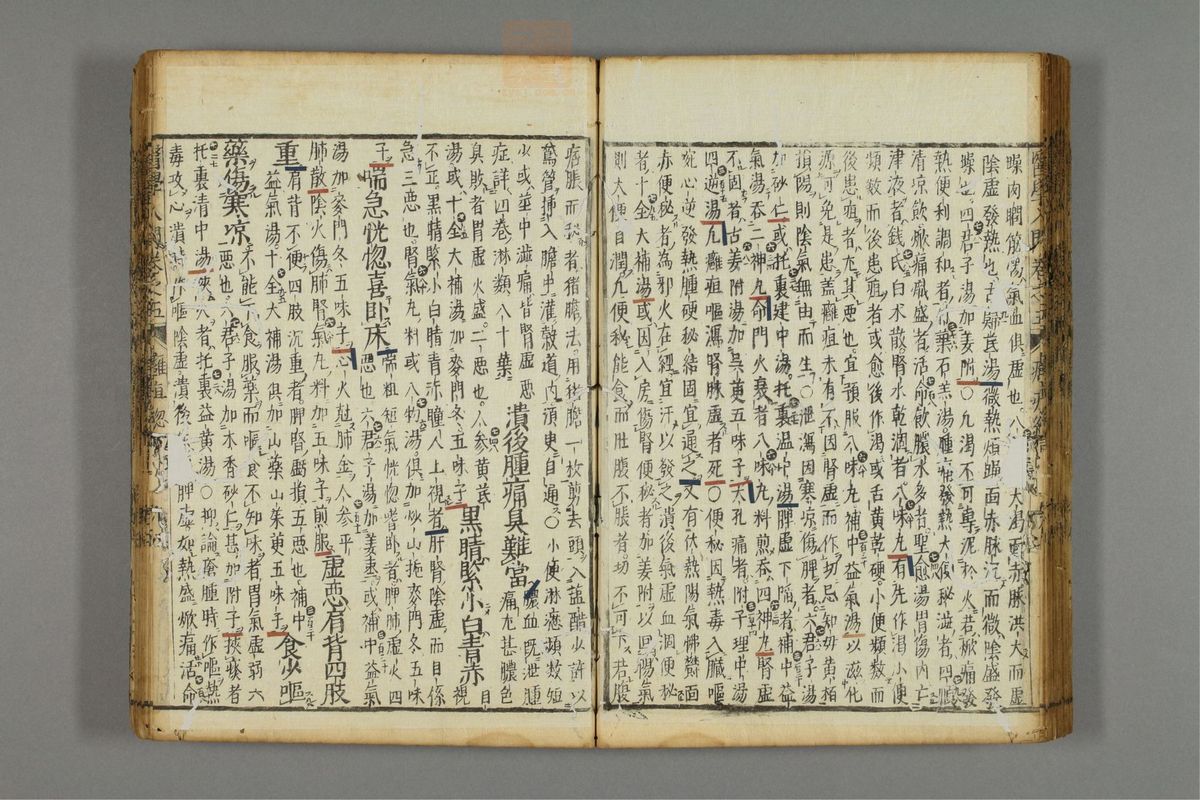 噪肉瞤筋惕氣血俱虛也八
大渴面赤脉洪大而虛
陰虛發熱也
湯微熱煩躁面赤脉沉而微陰盛發
躁也四君子湯加姜附〇凡渴不可專泥於火若焮痛發
熱便利調和者
清凉飲焮痛膿盛者活命飲膿水多者聖愈湯胃傷內亡
津液者錢氏白朮散腎水乾涸者八味丸有先作渴小便
頻數而後患疽者或愈後作渴或舌黃乾硬小便頻數而
後患疽者尤其惡也宜預服八味丸補中益氣湯以滋化
源可免是患盖癰疽未有不因腎虛而作切忌知母黃栢
損陽則陰氣無由而生〇泄瀉因寒凉傷脾者六君子湯
加砂仁或托裏建中湯托裏溫中湯脾虛下陷者補中益
氣湯吞二神丸命門火衰者八味丸料煎吞四神丸腎虛
不固者古姜附湯加吳茱更五味子大孔痛者附子理中湯
四逆湯凡癰疽嘔瀉腎脉虛者死〇便秘因熱毒入臟嘔
啘心逆發熱腫硬秘結固宜通之又有伏熱陽氣怫欝面
赤便秘者為邪火在經宜汗以發之潰後氣虛血涸便秘
者十全大補湯或因入房傷腎便秘者加姜附以回陽氣
則大便自潤凡便秘能食而肚腹不脹者切不可下若腹
痞脹而秘者猪膽法用猪膽一枚剪去頭入盐醋少許以
鵞管揷入膽中灌穀道內須臾自通〇小便淋瀝頻數短
少或莖中澁痛皆腎虛惡症詳四卷淋類
潰後腫痛臭難當
膿血既泄腫痛尤甚膿色
臭敗者胃虛火盛二惡也人參黃芪湯或十全大補湯加麥門冬五味子
黑睛緊小白青赤
目視
不正黑睛緊小白睛青赤瞳人上視者肝腎陰虛而目係
急三惡也腎氣丸料或八物湯俱加炒山梔麥門冬五味
子
喘急恍惚喜卧床
喘粗短氣恍惚嗜卧者脾肺虛火四惡也六君子湯加姜棗或補中益氣
湯加麥門冬五味子心火尅肺金人參平
肺散陰火傷肺腎氣丸料加五味子煎服
虛惡肩背四肢
重
肩背不便四肢沉重者脾腎虧損五惡也補中
益氣湯十全大補湯俱加山藥山茱萸五味子
食少嘔
藥傷寒凉
不能食服藥而嘔食不知味者胃氣虛弱六
惡也六君子湯加木香砂仁甚加附子挾痰者
托裏清中湯
者托裏益黃湯〇抑論癰腫時作嘔熱
毒攻心潰
嘔陰虛潰後
脾虛如熱盛焮痛活命